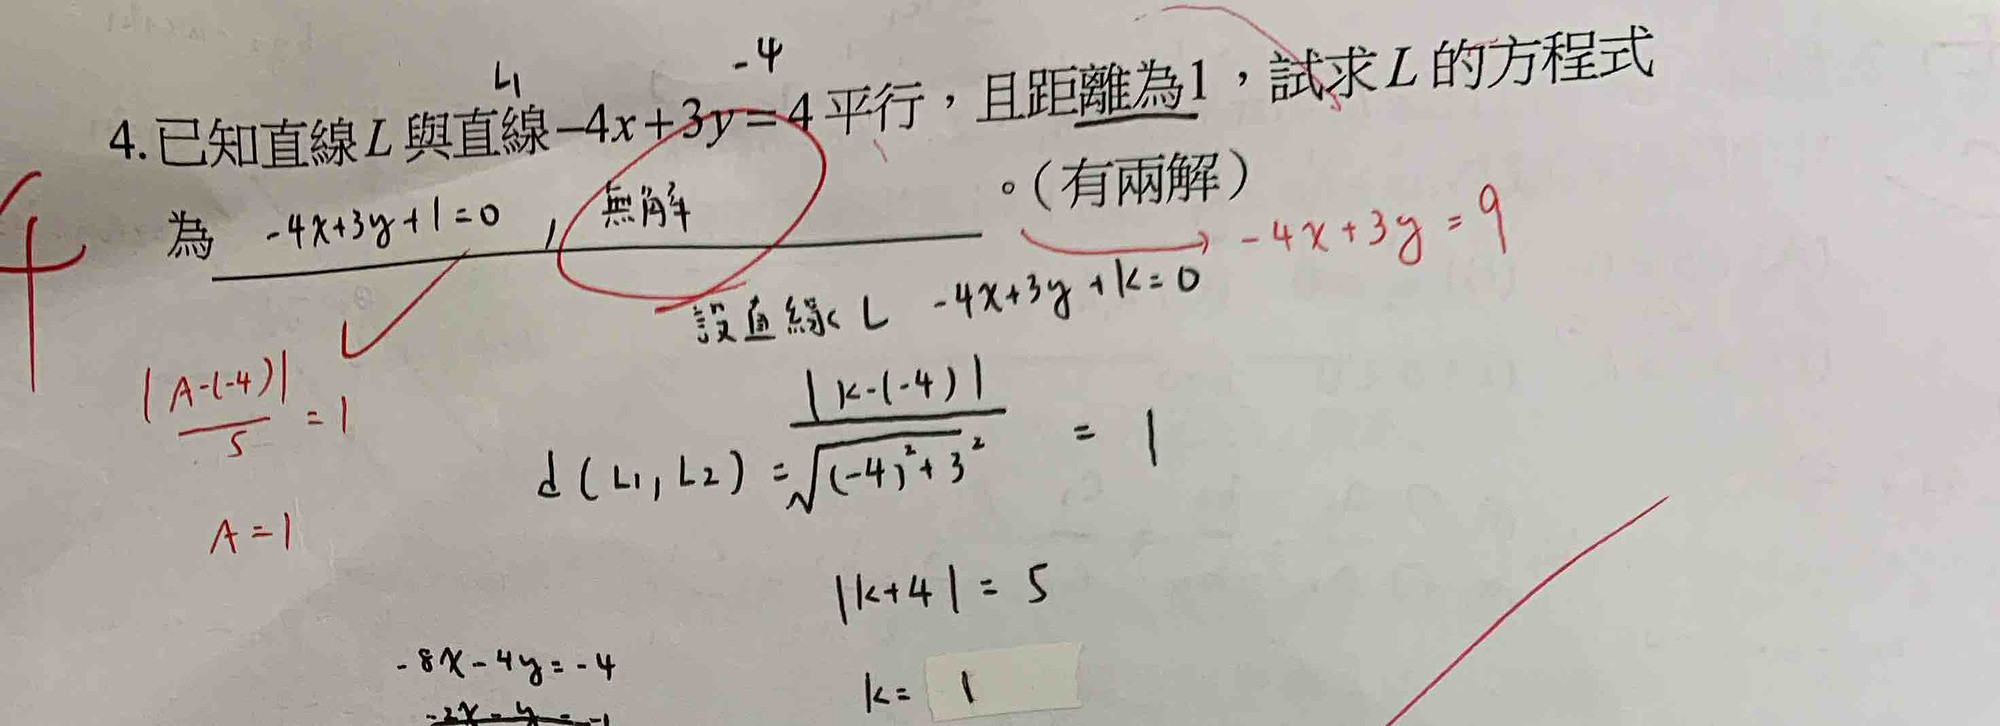 L₁
-4
4. 已知直線L與直線-4x+3y=4平行，且距離為1，試求L的方程式
為 -4x+3y+1=0 , 無解 。（有兩解）
-4x+3y=9
設直線L -4x+3y+k=0
|A-(-4)|/5 = 1
A=1
d(L₁, L₂) = |k-(-4)|/√((-4)²+3²) = 1
|k+4| = 5
k= 1
-8x-4y=-4
-2x-y=-1